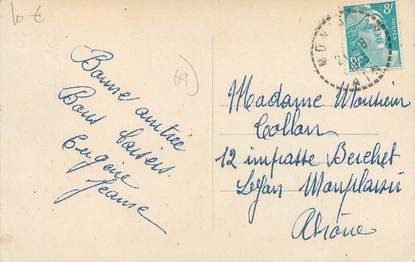 10 €
69)
Bonne amitié
Bons baisers.
Eugène
Jeanne
8F
POSTES
AIN
Madame Monsieur
Collon
12 impasse Berchet
Lyon Monplaisir
Rhône